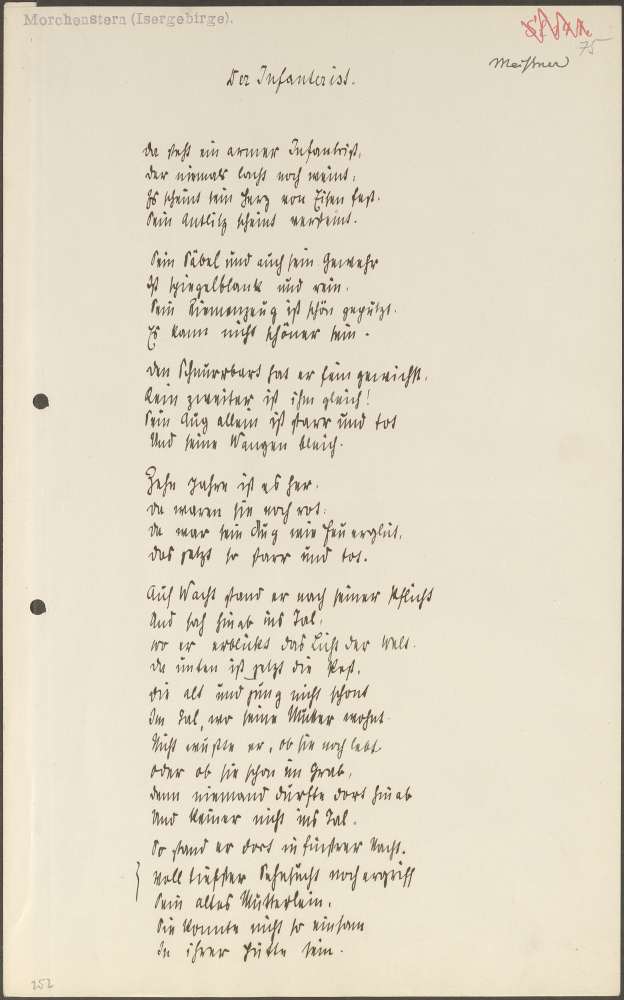 Morchenstern (Isergebirge).
75
Meißner
Der Infanterist.
Da steht ein armer Infantrist,
der niemals lacht noch weint,
Es scheint sein Herz von Eisen fest.
Sein Antlitz scheint versteint.
Sein Säbel und auch sein Gewehr
Ist spiegelblank und rein.
Sein Riemenzeug ist schön geputzt.
Es kann nicht schöner sein.
Den Schnurrbart hat er fein gewichst,
Kein zweiter ist ihm gleich!
Sein Aug allein ist starr und tot
Und seine Wangen bleich.
Zehn Jahre ist es her.
da waren sie noch rot.
da war sein Aug wie Feuerglut,
das jetzt so starr und tot.
Auf Wacht stand er nach seiner Pflicht
Und sah hinab ins Tal,
wo er erblickt das Licht der Welt.
da unten ist jetzt die Pest,
die alt und jung nicht schont
Im Tal, wo seine Mutter wohnt
Nicht wußte er, ob sie noch lebt
oder ob sie schon im Grab,
denn niemand durfte dort hinab
Und keiner nicht ins Tal.
So stand er dort in finstrer Nacht.
voll tiefster Sehnsucht noch ergriff
Sein altes Mütterlein.
Sie konnte nicht so einsam
In ihrer Hütte sein.
252